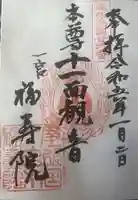 奉拝 令和五年一月二日
本尊十一面観音
一宮
福寿院